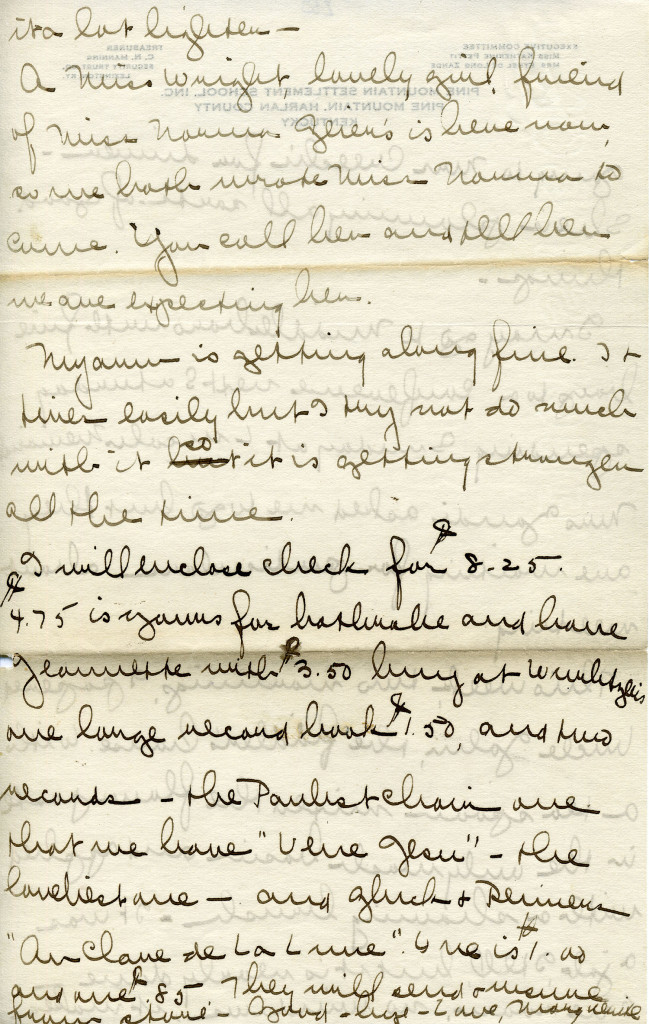 it a lot lighter —
A Miss Wright, lovely girl, friend
of Miss Norma Geier's is here now,
so we both wrote Miss Norma to
come. You call her and tell her
we are expecting her.
My arm is getting along fine. It
tires easily but I try not do much
with it so it is getting stronger
all the time.
I will enclose check for $8.25.
$4.75 is yours for bathrobe and have
Jeannette with $3.50 buy at Wurlitzer's
one large record book $1.50, and two
records – the Paulist choir one
that we have "Vere Jesu" – the
loveliest one – and Gluck & Reimers
"Au Clare de La Lune". One is $1.00
and one $.85 They will send & insure
from store – Good-bye – Love, Marguerite
EXECUTIVE COMMITTEE
MISS KATHERINE PETTIT
MISS ETHEL DE LONG ZANDE
TREASURER
C. N. MANNING
SECURITY TRUST CO.
LEXINGTON, KY.
PINE MOUNTAIN SETTLEMENT SCHOOL, INC.
PINE MOUNTAIN, HARLAN COUNTY
KENTUCKY